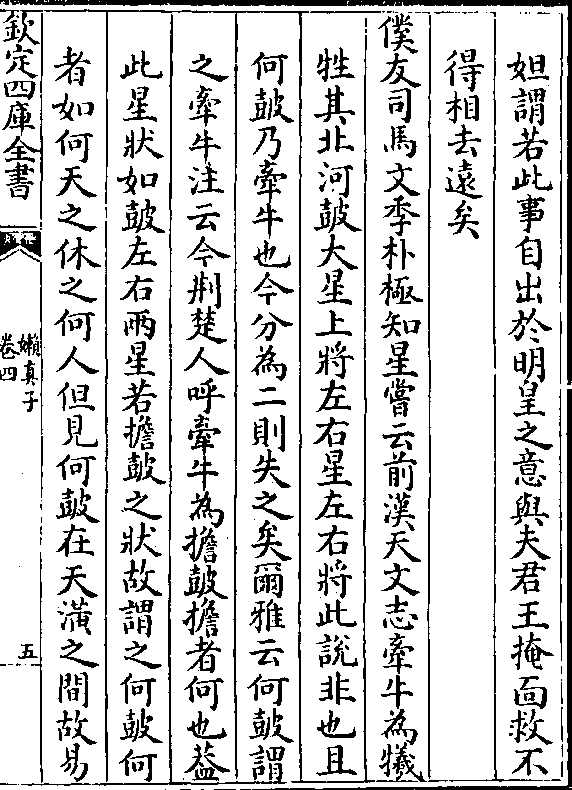 妲謂若此事自出於明皇之意與夫君王掩面救不
得相去遠矣
僕友司馬文季朴極知星嘗云前漢天文志牽牛為犧
牲其北河鼓大星上將左右星左右將此説非也且
何鼓乃牽牛也今分為二則失之矣爾雅云何鼓謂
之牽牛注云今荆楚人呼牽牛為擔鼓擔者何也葢
此星狀如鼓左右兩星若擔鼓之狀故謂之何鼓何
者如何天之休之何人但見何鼓在天潢之間故易
欽定四庫全書
嬾真子
卷四
五